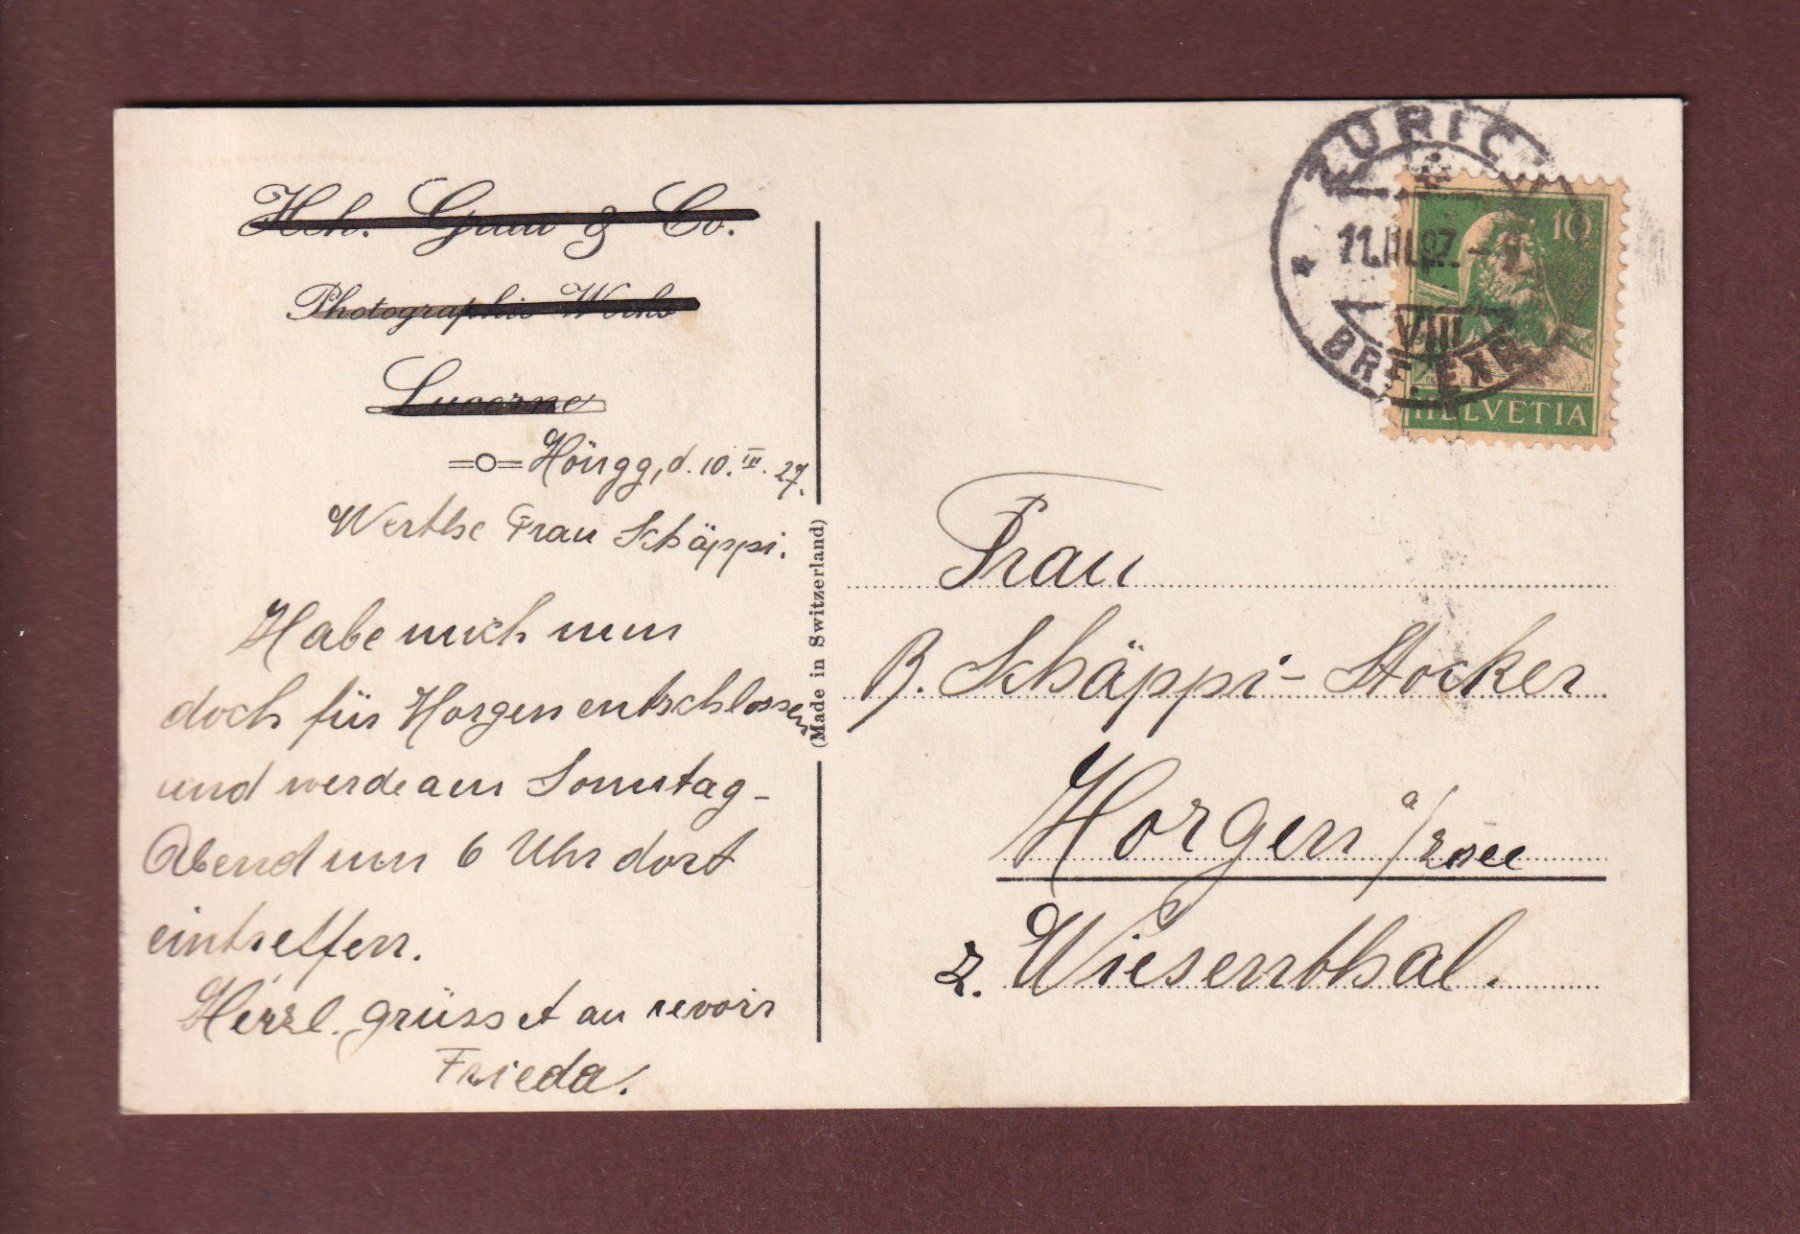 Hch. Grau & Co.
Photographie Works
Lucerne
Höngg, d. 10. III. 27.
Werthe Frau Schäppi.
Habe mich nun
doch für Horgen entschlossen
und werde am Sonntag-
Abend um 6 Uhr dort
eintreffen.
Herzl. grüsst au revoir
Frieda.
(Made in Switzerland)
ZÜRICH
11.III.27.
VIII
BRF. EXP.
10
HELVETIA
Frau
B. Schäppi-Stocker
Horgen a/Zsee
z. Wiesenthal.